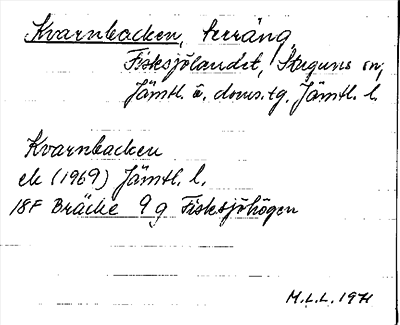 Kvarnbacken, terräng,
Fisksjölandet, Stuguns sn,
Jämtl. ö. doms.tg. Jämtl. l.
Kvarnbacken
ek (1969) Jämtl. l.
18F Bräcke 9g Fisksjöhögen
M.L.L. 1971